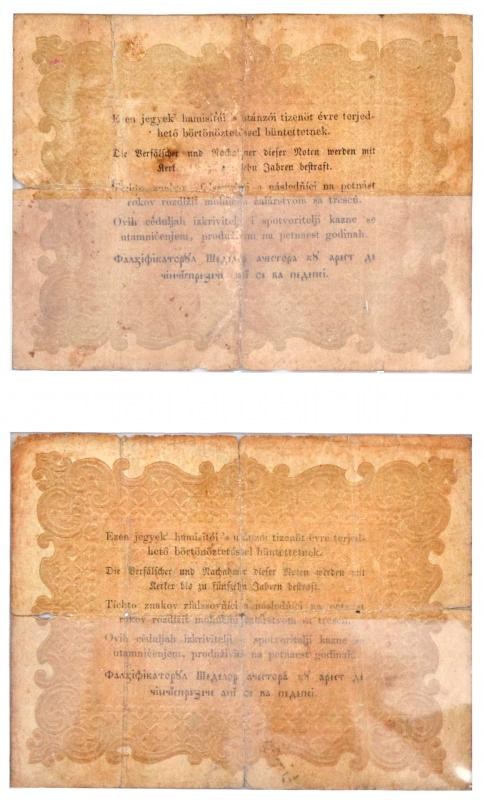 Ezen jegyek' hamisítói 's utánzói tizenöt évre terjed-
hető börtönöztetéssel büntettetnek.
Die Verfälscher und Nachahmer dieser Noten werden mit
Kerk Jahren bestraft.
Tíchto znakov a násladňíci na petnást
rokov rozdlžiť žalárstvom sa trescú.
Ovih céduljah izkrivitelji i spotvoritelji kazne se
utamničenjem, produživ na petnaest godinah.
Фалцїфікаторꙋл Шеделор ачестора кꙋ арест де
чінчіспрезече ані се ва педепсі.
Ezen jegyek' hamisítói 's utánzói tizenöt évre terjed-
hető börtönöztetéssel büntettetnek.
Die Verfälscher und Nachahmer dieser Noten werden mit
Kerker bis zu fünfzehn Jahren bestraft.
Tíchto znakov zfalšovňíci a násladňíci na petnást
rokov rozdlžiť žalárstvom sa trescú.
Ovih céduljah izkrivitelji spotvoritelji kazne se
utamničenjem, produživ na petnaest godinah.
Фалцїфікаторꙋл Шеделор ачестора кꙋ арест де
чінчіспрезече ані се ва педепсі.